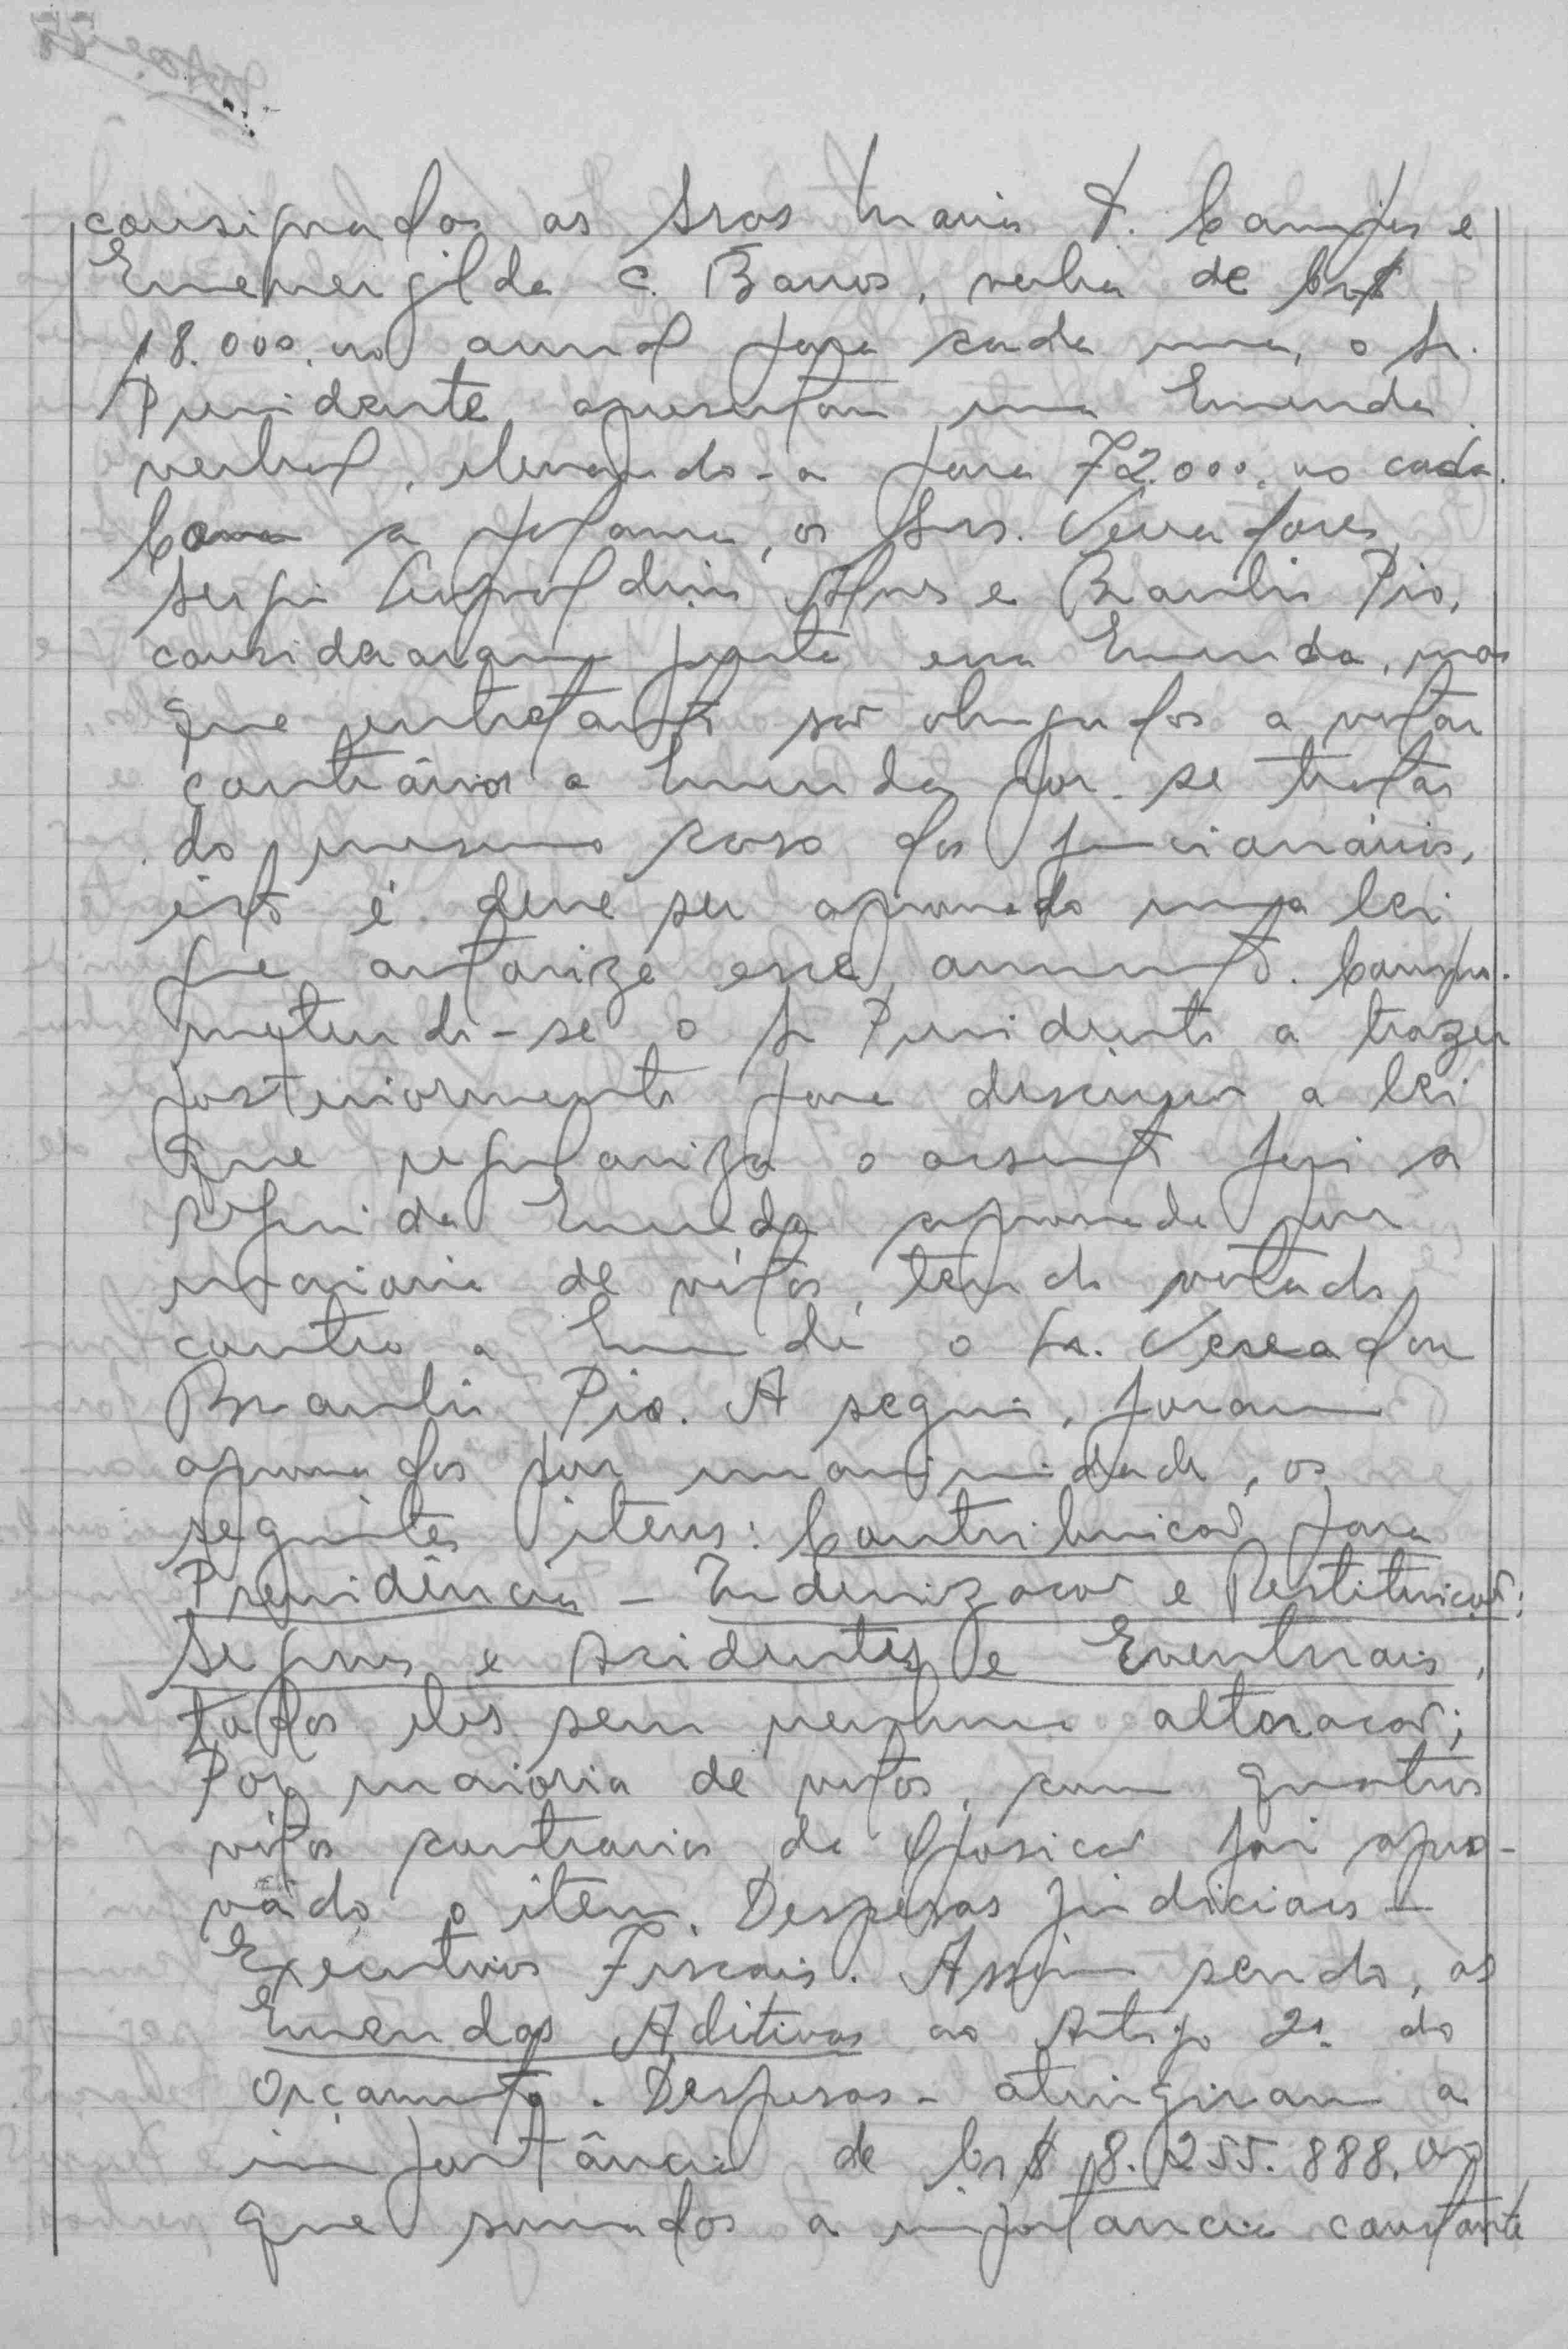 consignados as Sras Maria T. Campos e
Ermenergilda C. Barros, verba de Cr$
18.000,00 anual para cada uma, o Sr.
Presidente apresentou uma Emenda
verbal, elevando-a para 72.000,00 cada.
Com a palavra, os Srs. Vereadores
Sergio Alves e Braulio Pio,
consideraram justa essa Emenda, mas
que entretanto ser obrigados a votar
contrários a Emenda por se tratar
do mesmo caso dos funcionários,
isto é deve ser aprovado uma lei
que autorize esse aumento. Compro-
metendo-se o Sr Presidente a trazer
posteriormente para discussão a lei
que regulariza o assunto foi a
referida Emenda aprovada por
maioria de votos, tendo votado
contra a Emenda o Sr. Vereador
Braulio Pio. A seguir, foram
aprovados por unanimidade, os
seguintes itens: Contribuicao para
Previdência - Indenizacao e Restituicao;
Seguros e Acidentes e Eventuais,
todos eles sem nenhuma alteracao;
Por maioria de votos, com quatro
votos contrarios da Oposicao foi apro-
vado o item. Despesas Judiciais -
Executivos Fiscais. Assim sendo, as
Emendas Aditivas ao Artigo 2º do
Orçamento. Despesas - atingiram a
importância de Cr$ 8.255.888,00
que somados a importancia constante